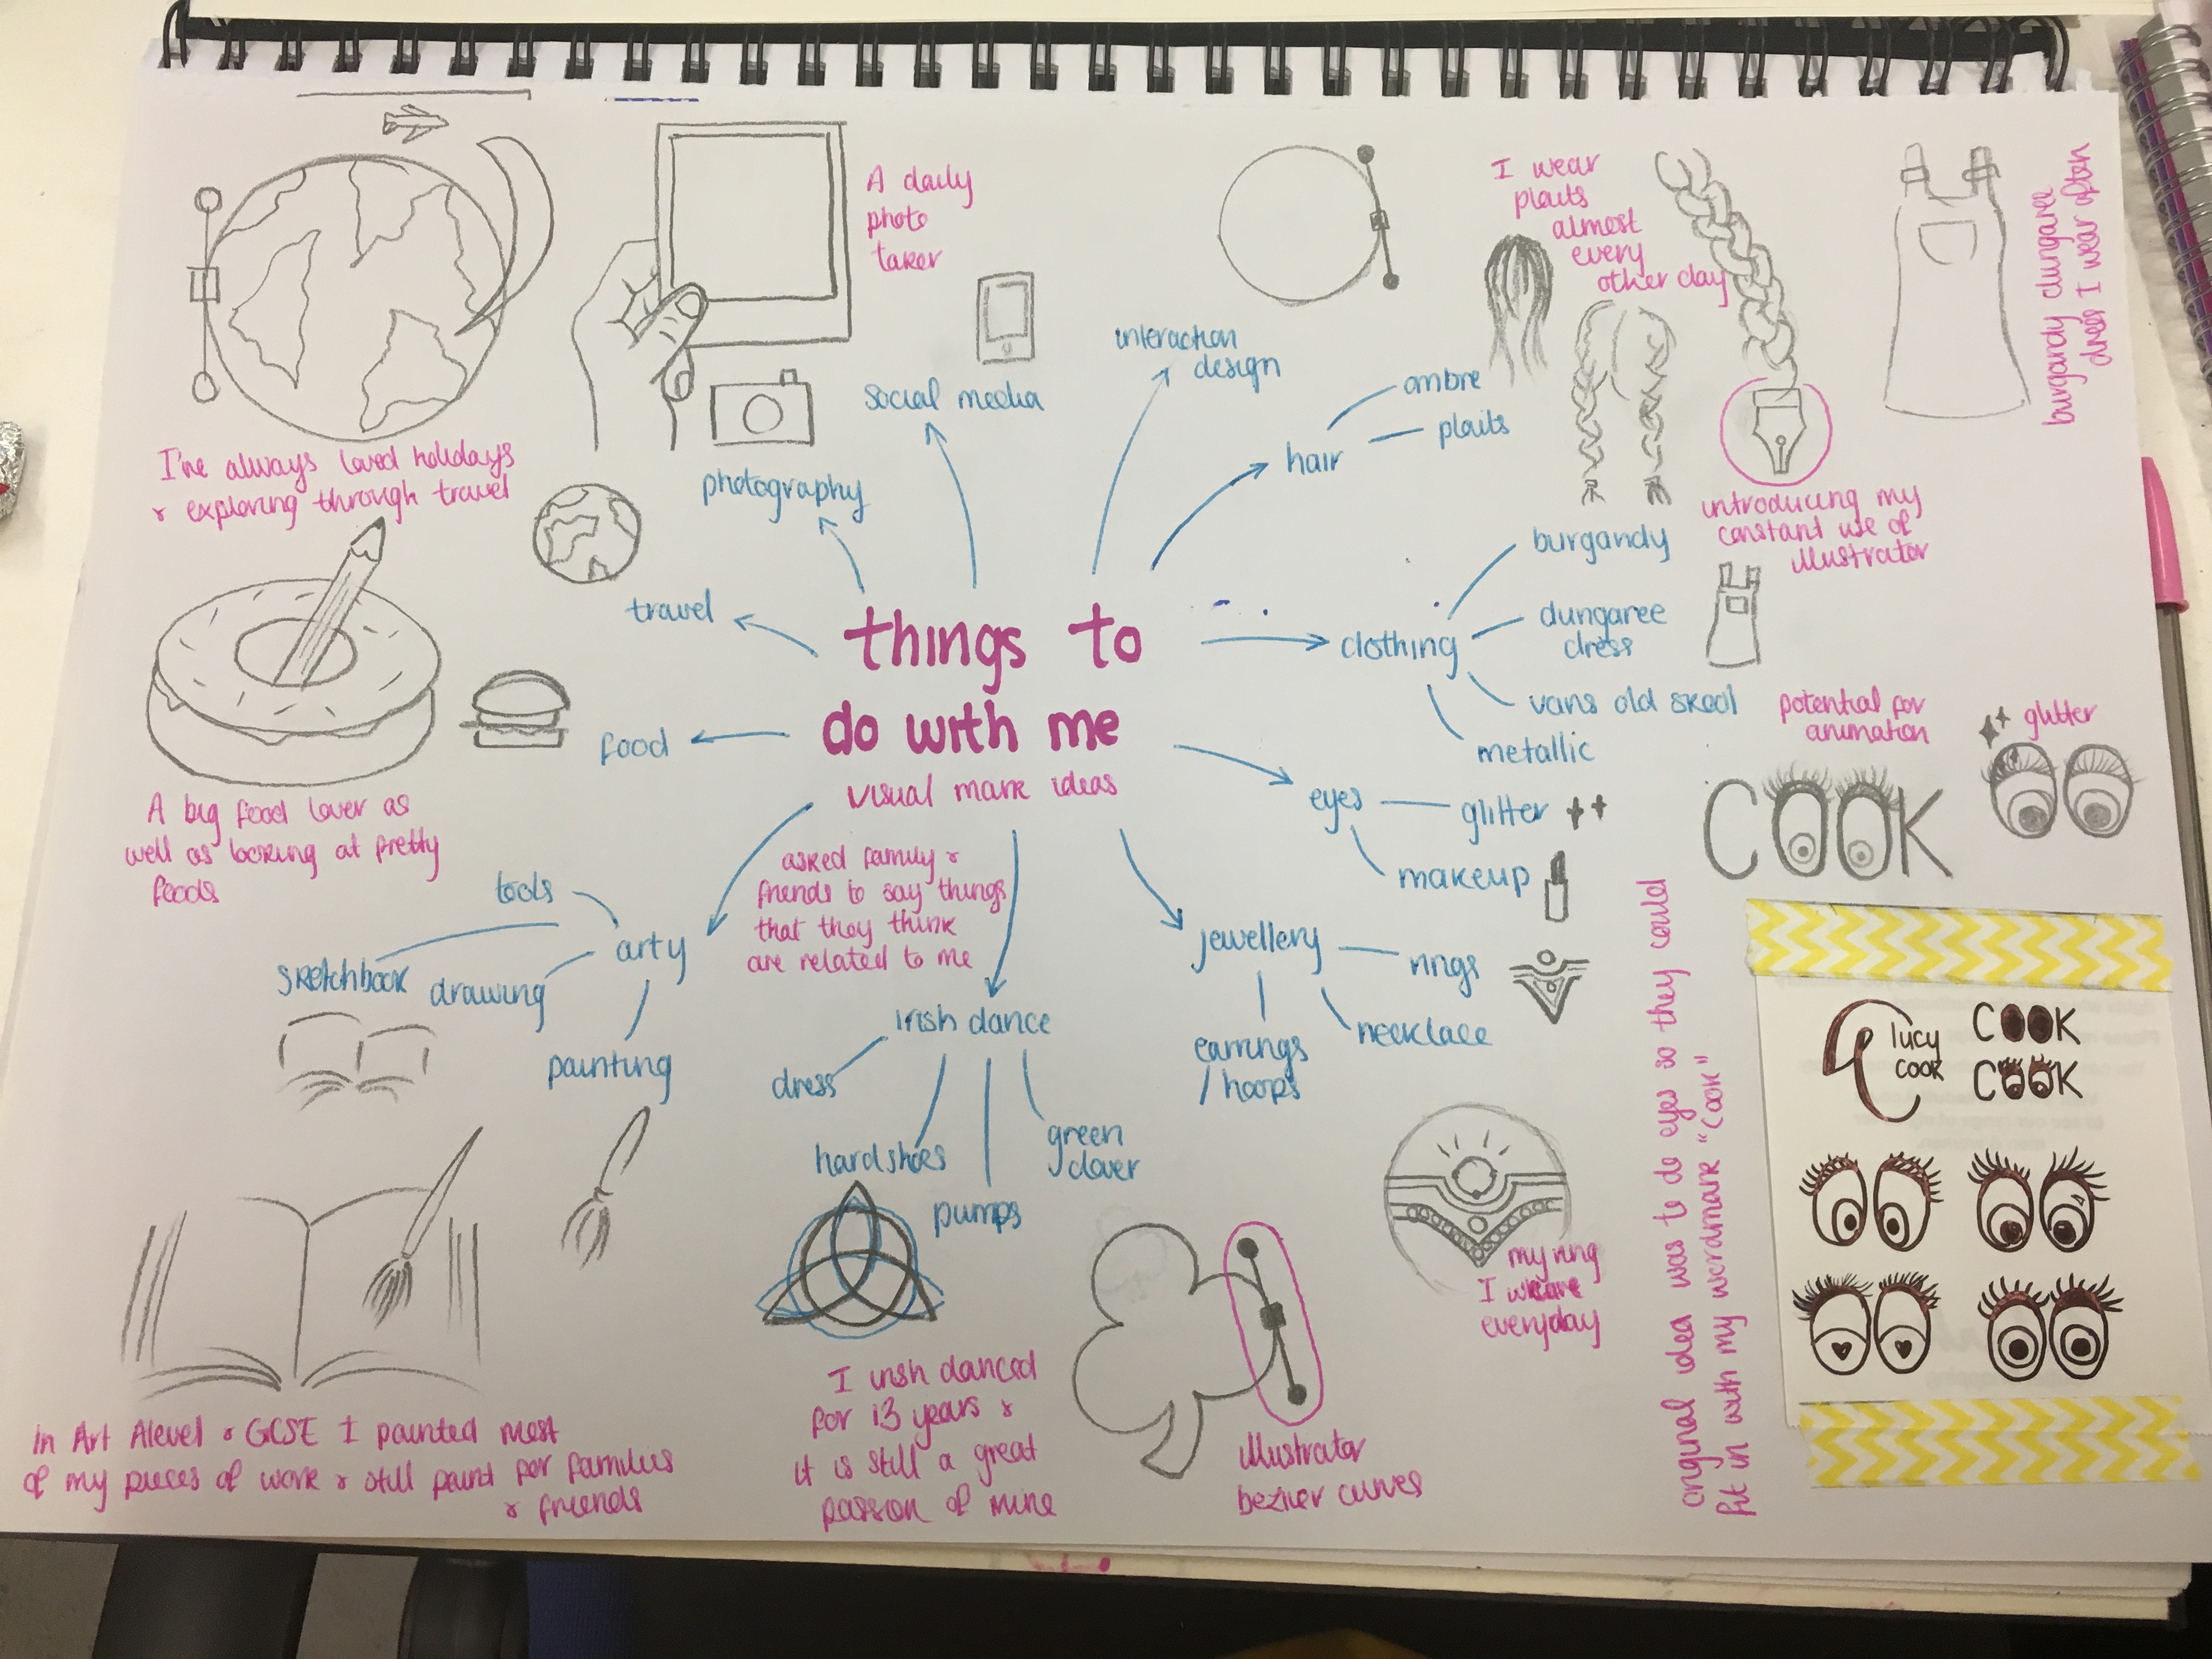 things to
do with me
visual mark ideas
asked family &
friends to say things
that they think
are related to me
I've always loved holidays
& exploring through travel
A daily
photo
taker
photography
social media
interaction
design
hair
ombre
plaits
I wear
plaits
almost
every
other day
introducing my
constant use of
illustrator
burgandy dungaree
dress I wear often
travel
food
A big food lover as
well as looking at pretty
foods
clothing
burgandy
dungaree
dress
vans old skool
metallic
potential for
animation
glitter
COOK
eyes
glitter
makeup
jewellery
rings
necklace
earrings
/ hoops
my ring
I weare
everyday
original idea was to do eyes so they could
fit in with my wordmark "COOK"
lucy
cook
COOK
COOK
arty
tools
sketchbook
drawing
painting
In Art Alevel & GCSE I painted most
of my pieces of work & still paint for families
& friends
Irish dance
dress
hardshoes
pumps
green
clover
I irish danced
for 13 years &
it is still a great
passion of mine
illustrator
bezier curves